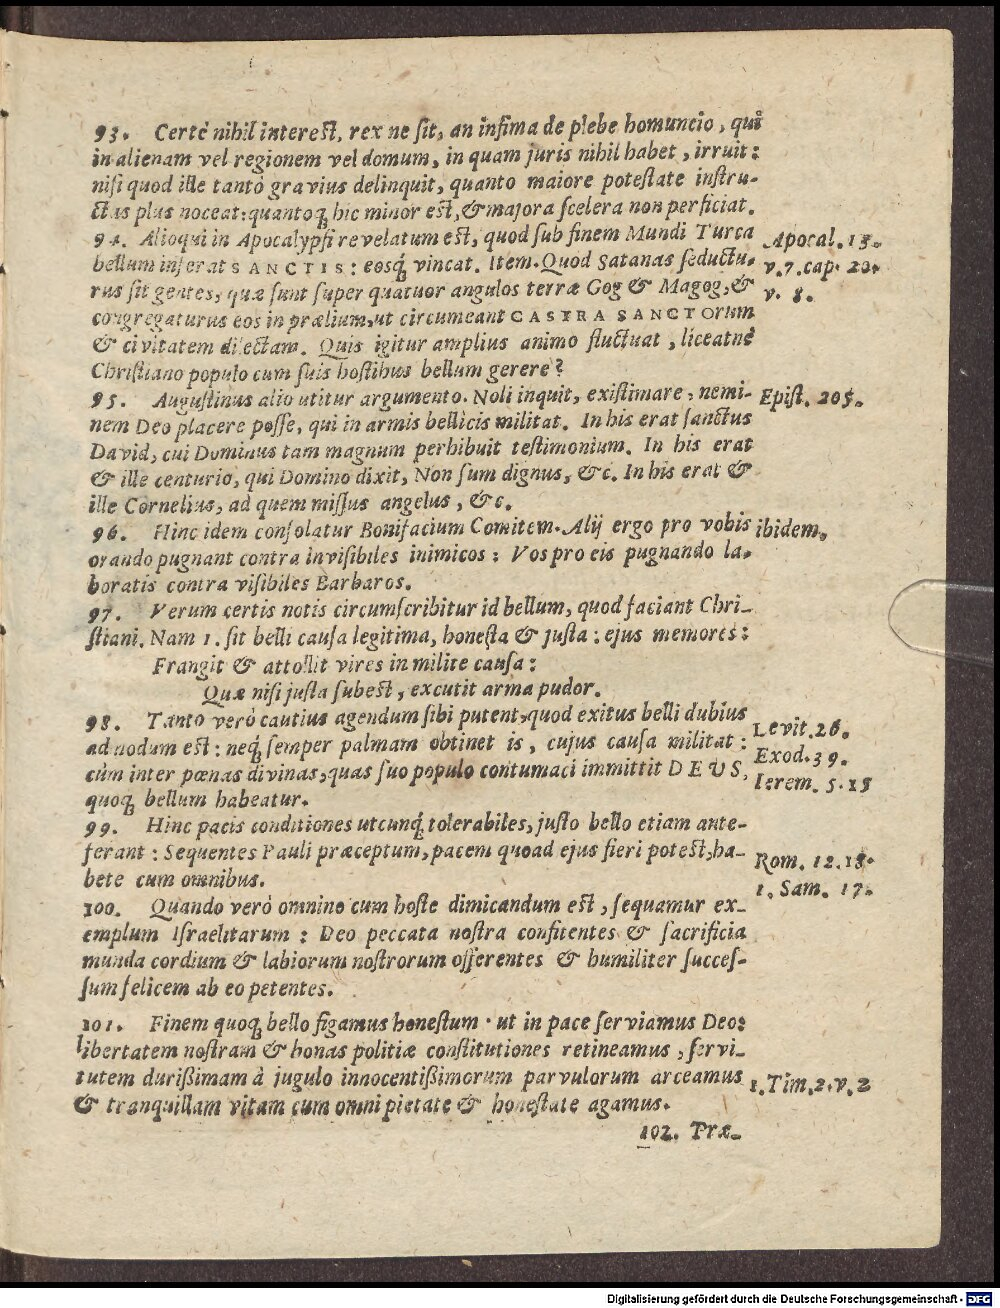 93. Certè nihil interest, rex ne sit, an infima de plebe homuncio, qui
in alienam vel regionem vel domum, in quam juris nihil habet, irruit:
nisi quod ille tantò gravius delinquit, quanto maiore potestate instru-
ctus plus noceat: quantoq́ hic minor est, & majora scelera non perficiat.
94. Alioqui in Apocalypsi revelatum est, quod sub finem Mundi Turca
bellum inferat SANCTIS: eosq́ vincat. Item. Quod Satanas seductu-
rus sit gentes, quæ sunt super quatuor angulos terræ Gog & Magog, &
congregaturus eos in prælium, ut circumeant CASTRA SANCTOrum
& civitatem dilectam. Quis igitur amplius animo fluctuat, liceatnè
Christiano populo cum suis hostibus bellum gerere?
Apocal. 13.
v. 7. cap. 20.
v. 8.
95. Augustinus alio utitur argumento. Noli inquit, existimare, nemi-
nem Deo placere posse, qui in armis bellicis militat. In his erat sanctus
David, cui Dominus tam magnum perhibuit testimonium. In his erat
& ille centurio, qui Domino dixit, Non sum dignus, &c. In his erat &
ille Cornelius, ad quem missus angelus, &c.
Epist. 205.
96. Hinc idem consolatur Bonifacium Comitem. Alij ergo pro vobis
orando pugnant contra invisibiles inimicos: Vos pro eis pugnando la-
boratis contra visibiles Barbaros.
ibidem.
97. Verum certis notis circumscribitur id bellum, quod faciant Chri-
stiani. Nam 1. sit belli causa legitima, honesta & justa: ejus memores:
Frangit & attollit vires in milite causa:
Quæ nisi justa subest, excutit arma pudor.
98. Tanto verò cautius agendum sibi putent, quod exitus belli dubius
admodum est: neq́ semper palmam obtinet is, cujus causa militat:
cùm inter pœnas divinas, quas suo populo contumaci immittit DEUS,
quoq́ bellum habeatur.
Levit. 26.
Exod. 39.
Ierem. 5. 15
99. Hinc pacis conditiones utcunq́ tolerabiles, justo bello etiam ante-
ferant: Sequentes Pauli præceptum, pacem quoad ejus fieri potest, ha-
bete cum omnibus.
Rom. 12. 18.
1. Sam. 17.
100. Quando verò omnino cum hoste dimicandum est, sequamur ex-
emplum Israelitarum: Deo peccata nostra confitentes & sacrificia
munda cordium & labiorum nostrorum offerentes & humiliter succes-
sum felicem ab eo petentes.
101. Finem quoq́ bello figamus honestum. ut in pace serviamus Deo:
libertatem nostram & bonas politiæ constitutiones retineamus, servi-
tutem durißimam à jugulo innocentißimorum parvulorum arceamus
& tranquillam vitam cum omni pietate & honestate agamus.
1. Tim. 2. v. 2
102. Præ-
Digitalisierung gefördert durch die Deutsche Forschungsgemeinschaft - DFG